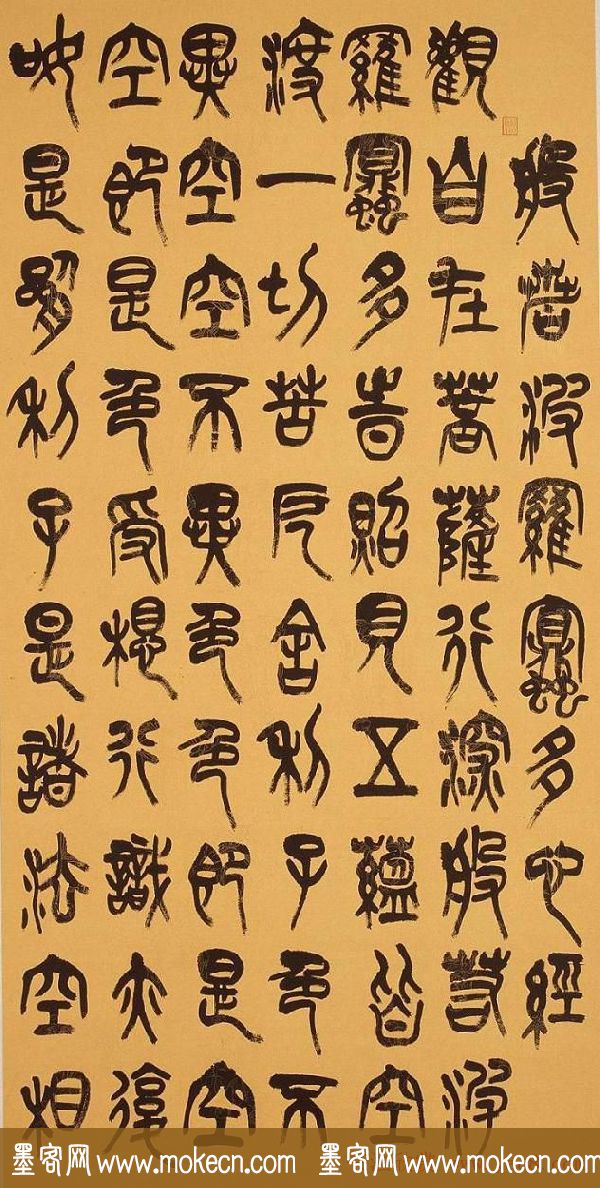 般若波羅蜜多心經
觀自在菩薩行深般若波
羅蜜多時照見五蘊皆空
渡一切苦厄舍利子色不
異空空不異色色即是空
空即是色受想行識亦復
如是舍利子是諸法空相
墨客网 www.mokecn.com 墨客网 www.mokecn.com